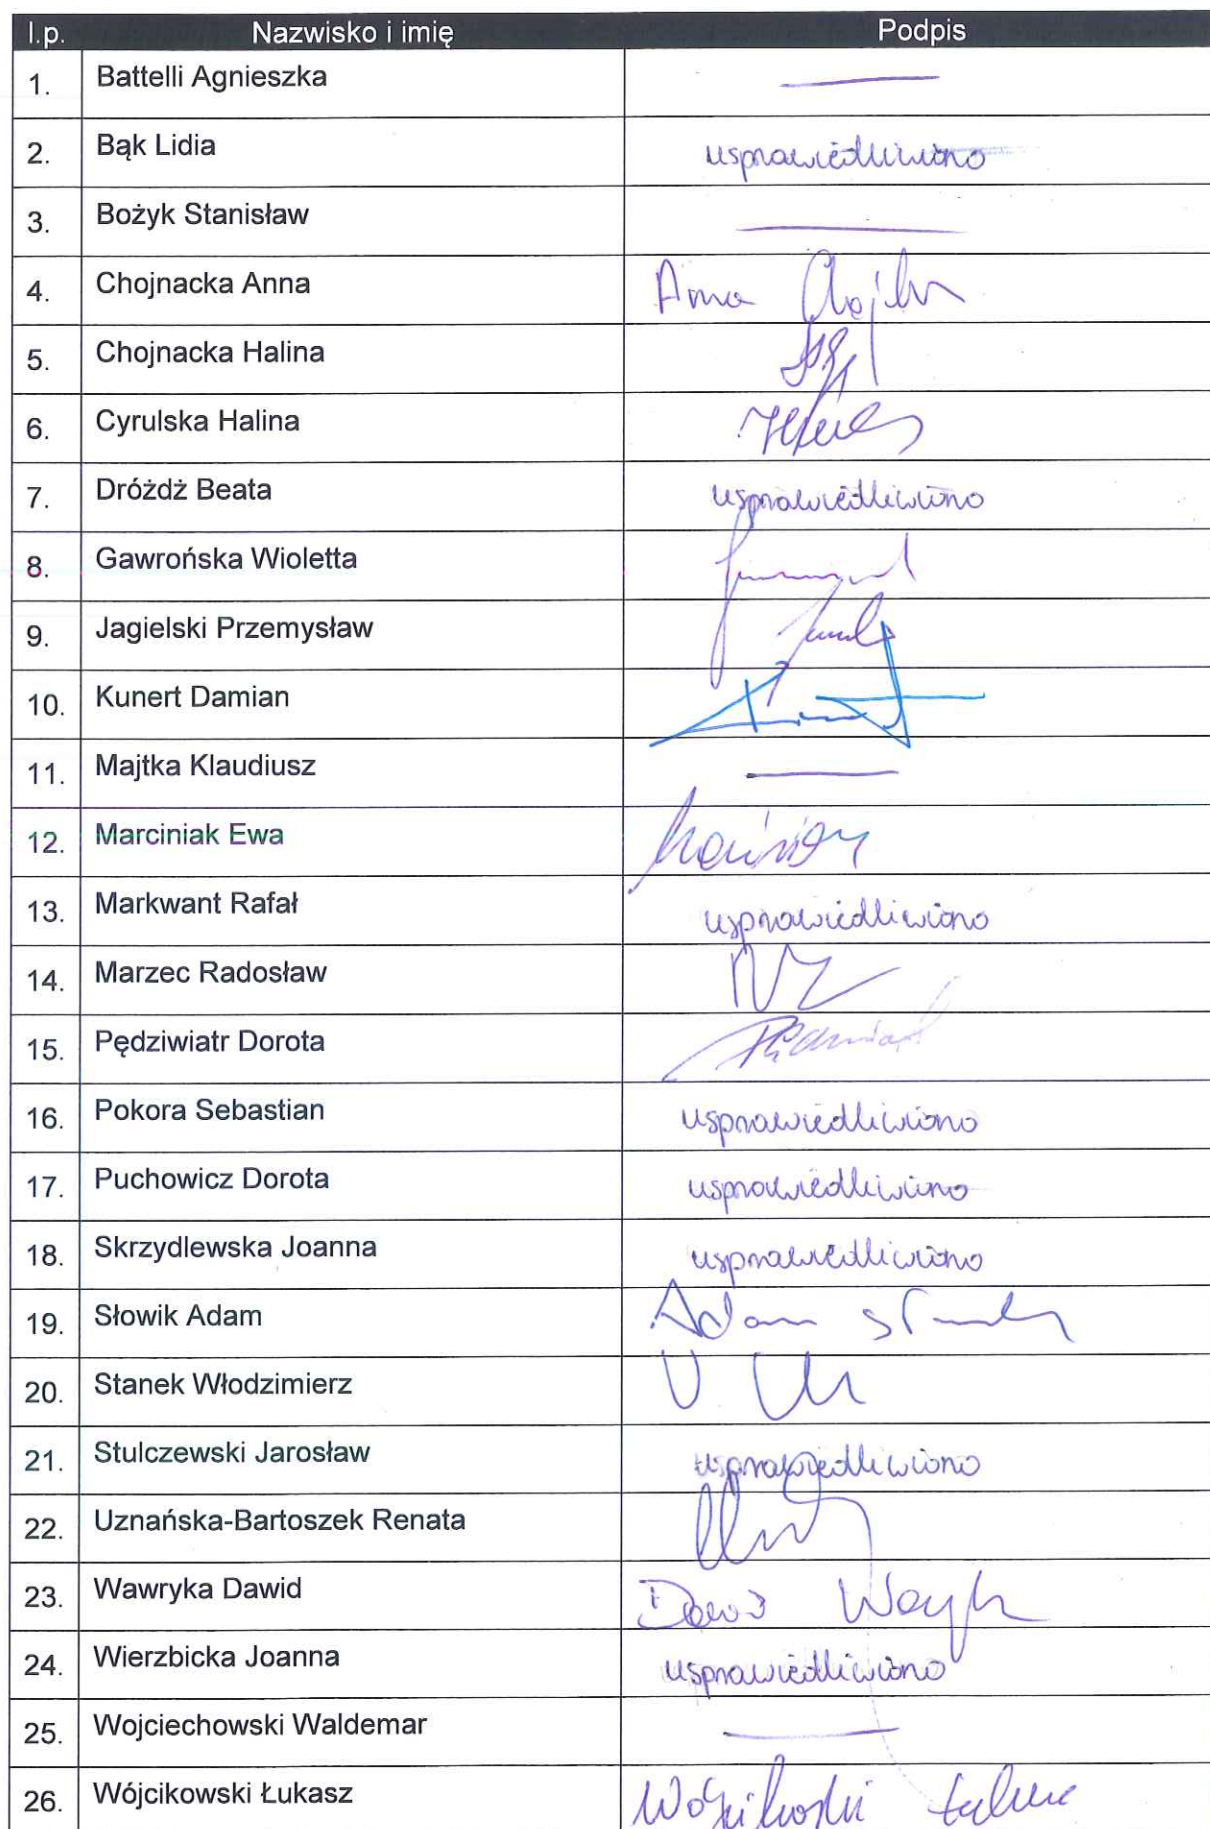 l.p. Nazwisko i imię Podpis
1. Battelli Agnieszka
2. Bąk Lidia usprawiedliwiono
3. Bożyk Stanisław
4. Chojnacka Anna Anna
5. Chojnacka Halina
6. Cyrulska Halina
7. Dróżdż Beata usprawiedliwiono
8. Gawrońska Wioletta
9. Jagielski Przemysław
10. Kunert Damian
11. Majtka Klaudiusz
12. Marciniak Ewa
13. Markwant Rafał usprawiedliwiono
14. Marzec Radosław
15. Pędziwiatr Dorota
16. Pokora Sebastian usprawiedliwiono
17. Puchowicz Dorota usprawiedliwiono
18. Skrzydlewska Joanna usprawiedliwiono
19. Słowik Adam Adam
20. Stanek Włodzimierz
21. Stulczewski Jarosław usprawiedliwiono
22. Uznańska-Bartoszek Renata
23. Wawryka Dawid Dawid
24. Wierzbicka Joanna usprawiedliwiono
25. Wojciechowski Waldemar
26. Wójcikowski Łukasz Wójcikowski Łukasz